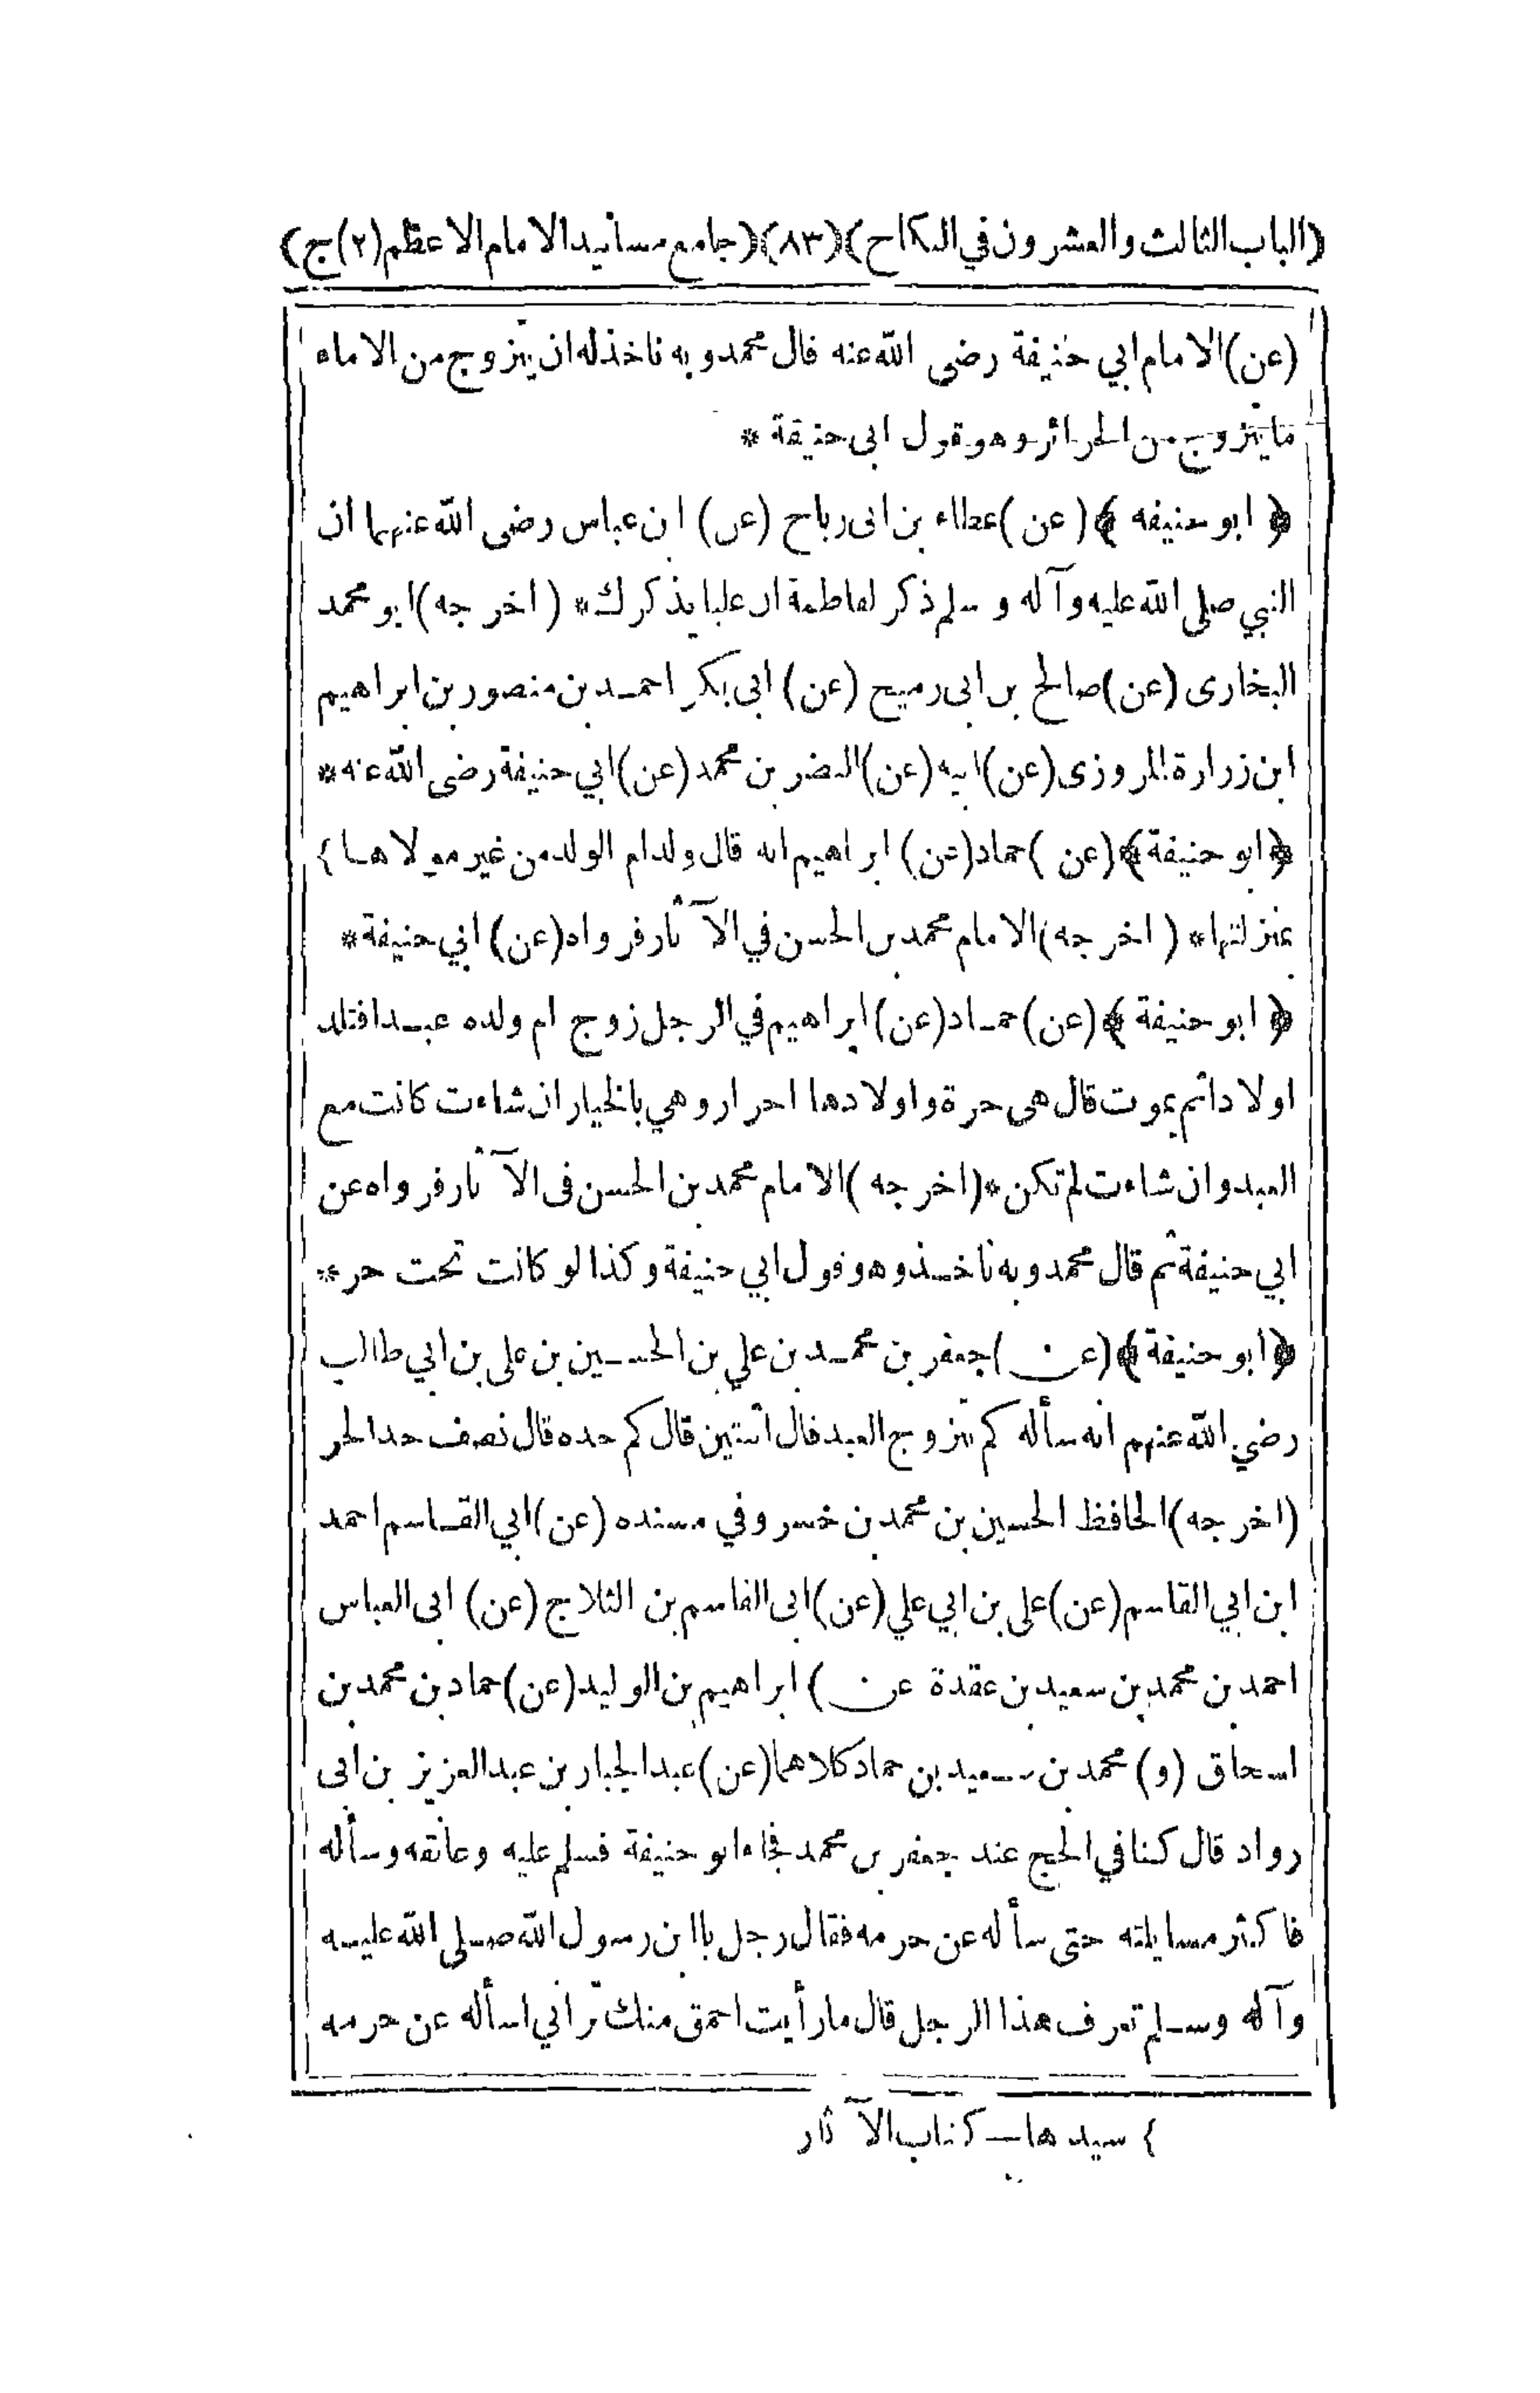 (الباب الثالث والعشرون في النكاح) (٨٣) (جامع مسانيد الامام الاعظم (٢) ج)
(عن) الامام ابي حنيفة رضى الله عنه قال محمد وبه ناخذ له ان يتزوج من الاماء
ما يتزوج من الحرائر وهو قول ابى حنيفة *
﴿ ابو حنيفه ﴾ (عن) عطاء بن ابى رباح (عن) ابن عباس رضى الله عنهما ان
النبي صلى الله عليه وآله وسلم ذكر لفاطمة ان عليا يذكرك * (اخرجه) ابو محمد
البخارى (عن) صالح بن ابى رميح (عن) ابى بكر احمد بن منصور بن ابراهيم
ابن زرارة المروزى (عن) ابيه (عن) النضر بن محمد (عن) ابي حنيفة رضى الله عنه *
﴿ ابو حنيفة ﴾ (عن) حماد (عن) ابراهيم انه قال ولد ام الولد من غير مولاها }
بمنزلتها * (اخرجه) الامام محمد بن الحسن في الآثار فرواه (عن) ابي حنيفة *
﴿ ابو حنيفة ﴾ (عن) حماد (عن) ابراهيم في الرجل زوج ام ولده عبدا فتلد
اولادا ثم يموت قال هى حرة واولادها احرار وهي بالخيار ان شاءت كانت مع
العبد وان شاءت لم تكن * (اخرجه) الامام محمد بن الحسن فى الآثار فرواه عن
ابي حنيفة ثم قال محمد وبه ناخذ وهو قول ابي حنيفة وكذا لو كانت تحت حر *
﴿ ابو حنيفة ﴾ (عن) جعفر بن محمد بن علي بن الحسين بن على بن ابي طالب
رضي الله عنهم انه سأله كم يتزوج العبد قال اثنتين قال كم حده قال نصف حد الحر
(اخرجه) الحافظ الحسين بن محمد بن خسرو في مسنده (عن) ابي القاسم احمد
ابن ابي القاسم (عن) على بن ابي علي (عن) ابى القاسم بن الثلاج (عن) ابى العباس
احمد بن محمد بن سعيد بن عقدة عن) ابراهيم بن الوليد (عن) حماد بن محمد بن
اسحاق (و) محمد بن سعيد بن حماد كلاهما (عن) عبد الجبار بن عبد العزيز بن ابى
رواد قال كنا في الحج عند جعفر بن محمد فجاء ابو حنيفة فسلم عليه وعانقه وسأله
فاكثر مسايلته حتى سأله عن حرمه فقال رجل يا ابن رسول الله صلى الله عليه
وآله وسلم تعرف هذا الرجل قال ما رأيت احمق منك تراني اسأله عن حرمه
} سيدها — كتاب الآثار